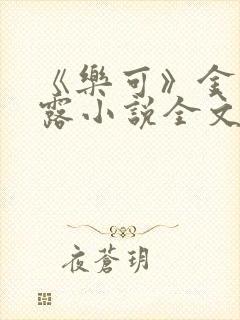 《樂可》金
露小說全文
夜蒼玥